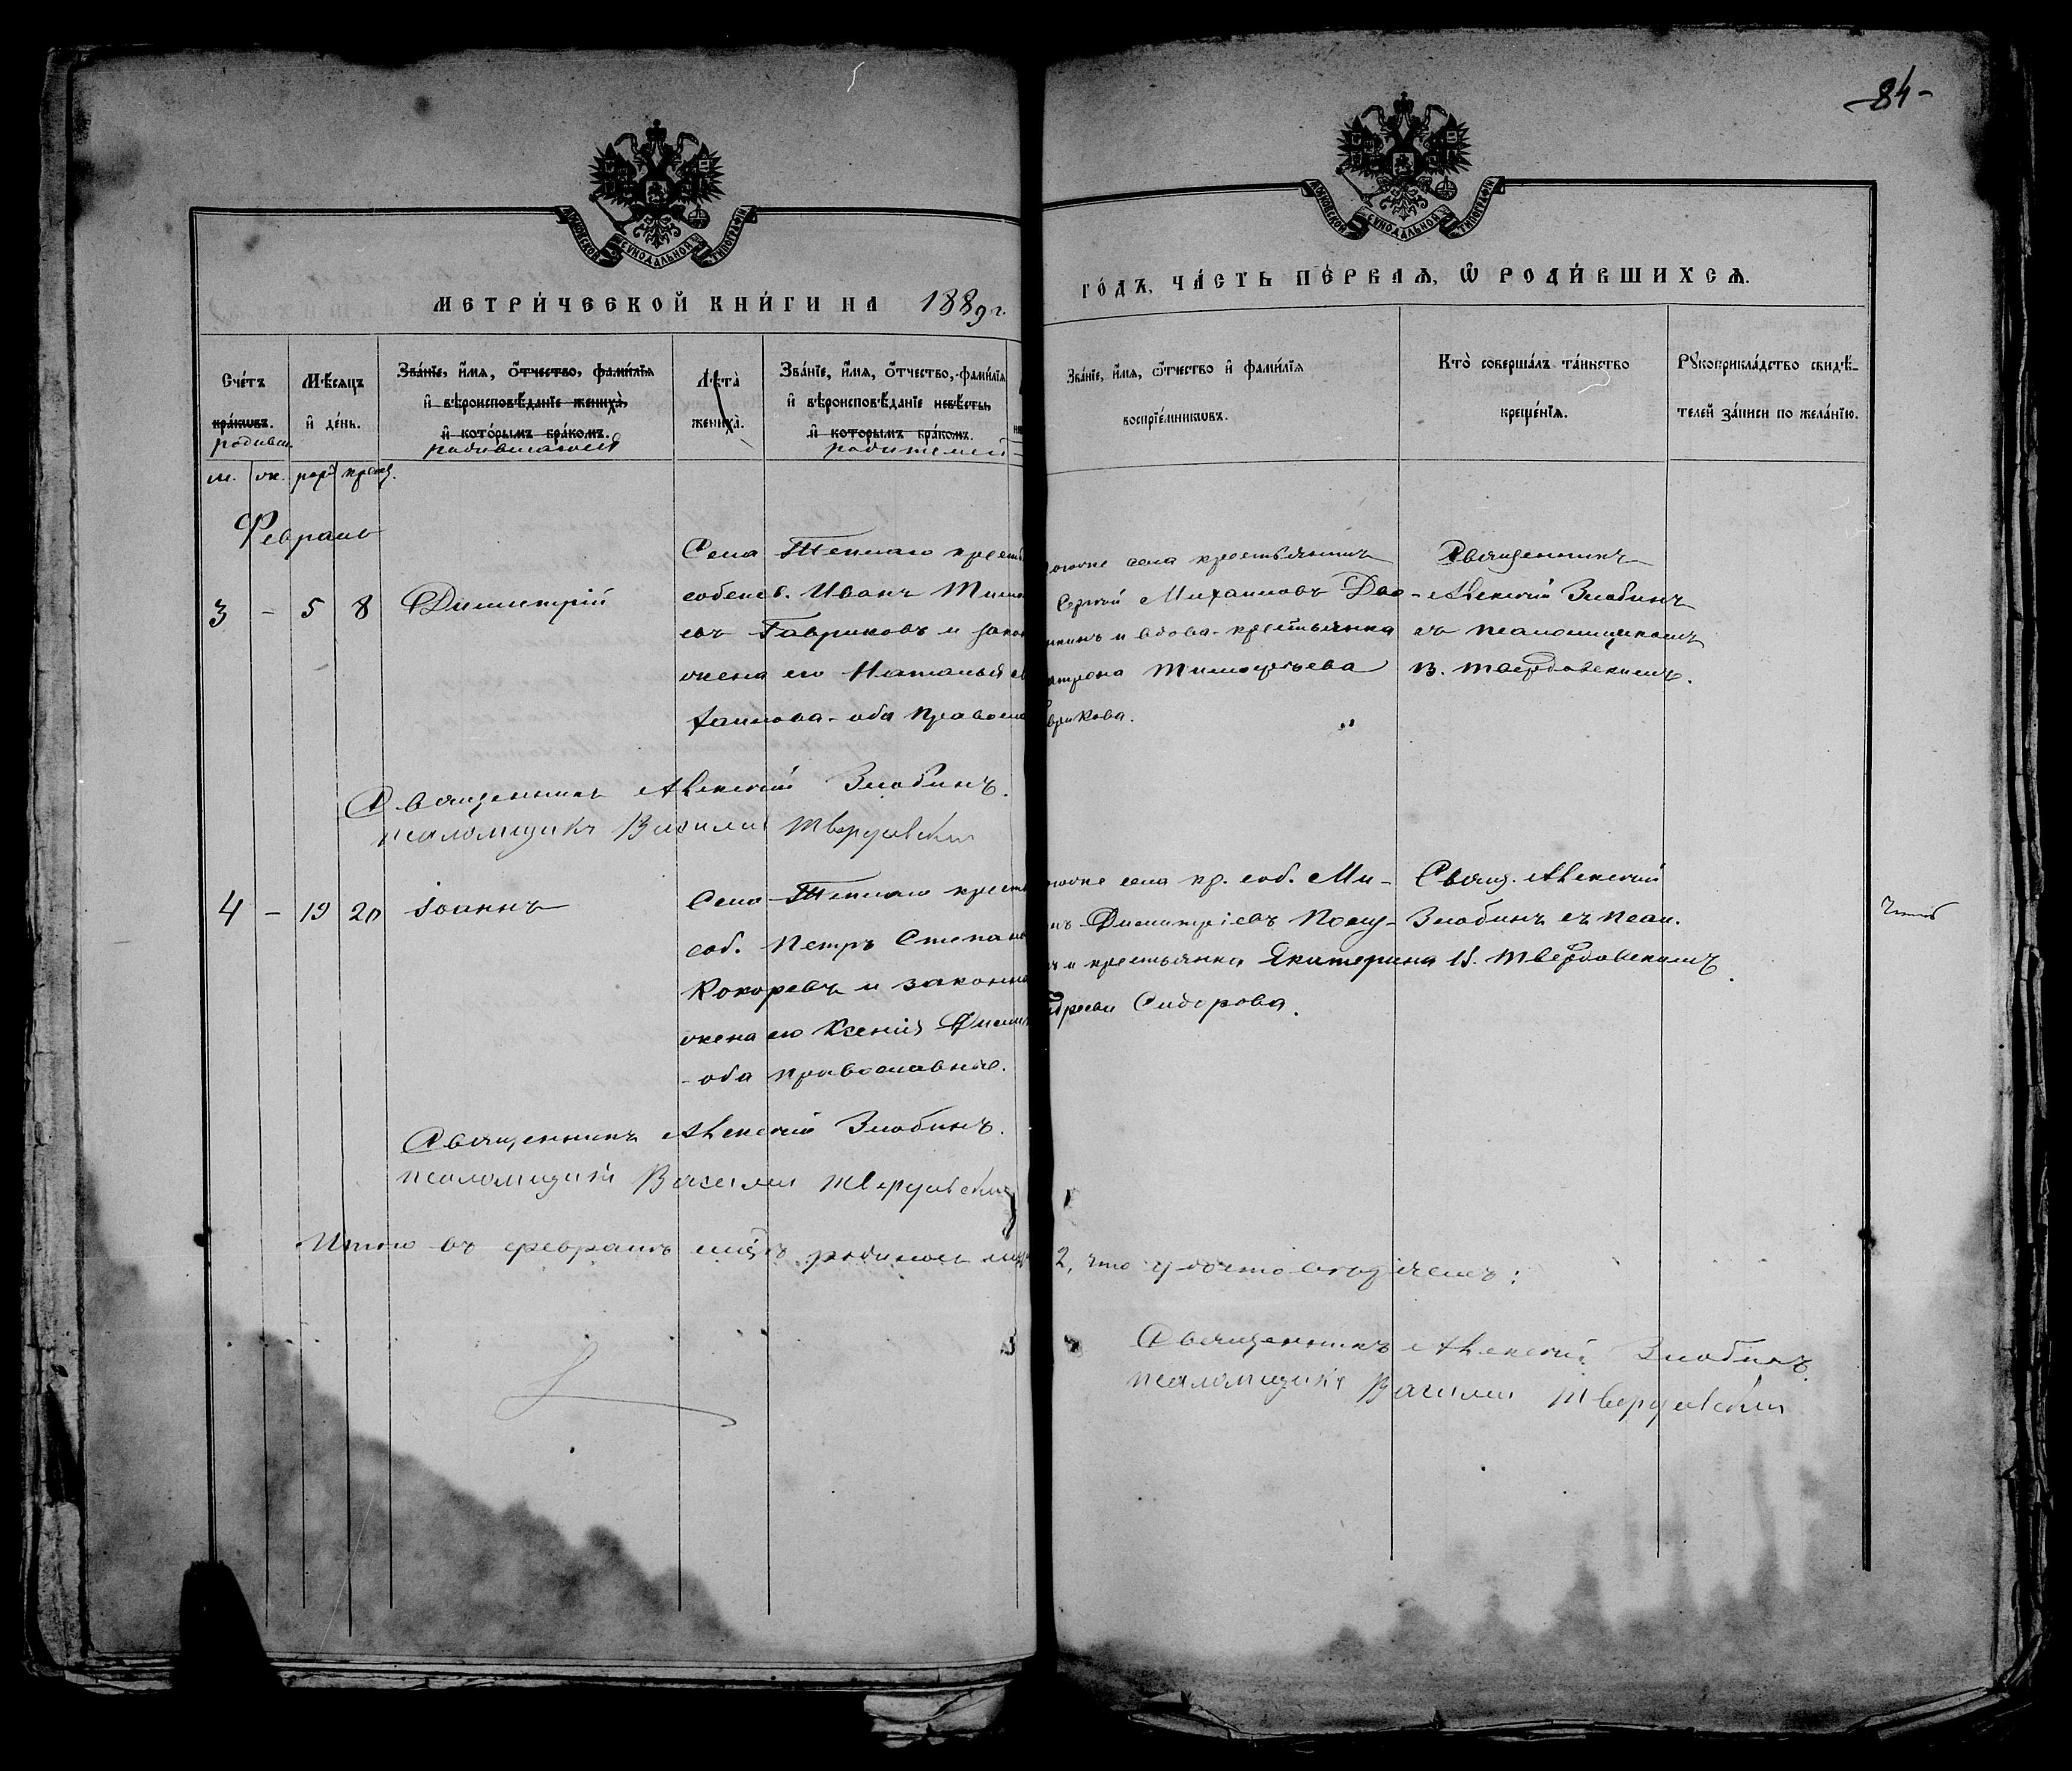 -84-
МОСКОВСКОЙ СѴНОДАЛЬНОЙ ТИПОГРАФІИ
МОСКОВСКОЙ СѴНОДАЛЬНОЙ ТИПОГРАФІИ
МЕТРИ́ЧЕСКОЙ КНИ́ГИ НА 1889 г.
ГО́ДЪ, ЧА́СТЬ ПЕ́РВАѦ, Ѿ РОДИ́ВШИХСѦ.
Сче́тъ бра́ковъ. родивш.
Мѣ́сяцъ и де́нь.
Зва́нїе, и́мя, ѻ́тчество, фами́лїя и вѣроисповѣ́данїе жениха̀, и кото́рымъ бра́комъ. родившагося
Лѣта̀ жениха̀.
Зва́нїе, и́мя, ѻ́тчество, фами́лїя и вѣроисповѣ́данїе невѣ́сты, и кото́рымъ бра́комъ. родителей
Зва́нїе, и́мя, ѻ́тчество и фами́лїя воспрїе́мниковъ.
Кто̀ соверша́лъ та́инство креще́нїя.
Рꙋкоприкла́дство свидѣ́телей за́писи по жела́нїю.
м. ж. рожд крещ.
Февраль
3 - 5 8 Димитрій
Села Теплаго крест
собств. Иванъ Тимо
евъ Гавриковъ и закон
жена его Наталья
хаилова - оба правосла
тогоже села крестьянинъ
Сергѣй Михаиловъ
и вдова крестьянка
Матрона Тимофѣева
Гаврикова.
Священникъ
Алексій Злобинъ
съ псаломщикомъ
В. Твердовскимъ.
Священникъ Алексій Злобинъ.
псаломщикъ Василій Твердовскій
4 - 19 20 Іоаннъ
Села Теплаго крест
соб. Петръ Степано
Кокоревъ и законна
жена его Ксенія Димит
- оба православные.
тогоже села кр. соб. Ми-
Димитріевъ
и крестьянка Екатерина
Андреева Сидорова.
Свящ. Алексій
Злобинъ съ псал.
В. Твердовскимъ.
Священникъ Алексій Злобинъ.
псаломщикъ Василій Твердовскій
Итого въ февралѣ мцѣ родилось муж 2, что удостовѣряемъ:
Священникъ Алексій Злобинъ
псаломщикъ Василій Твердовскій